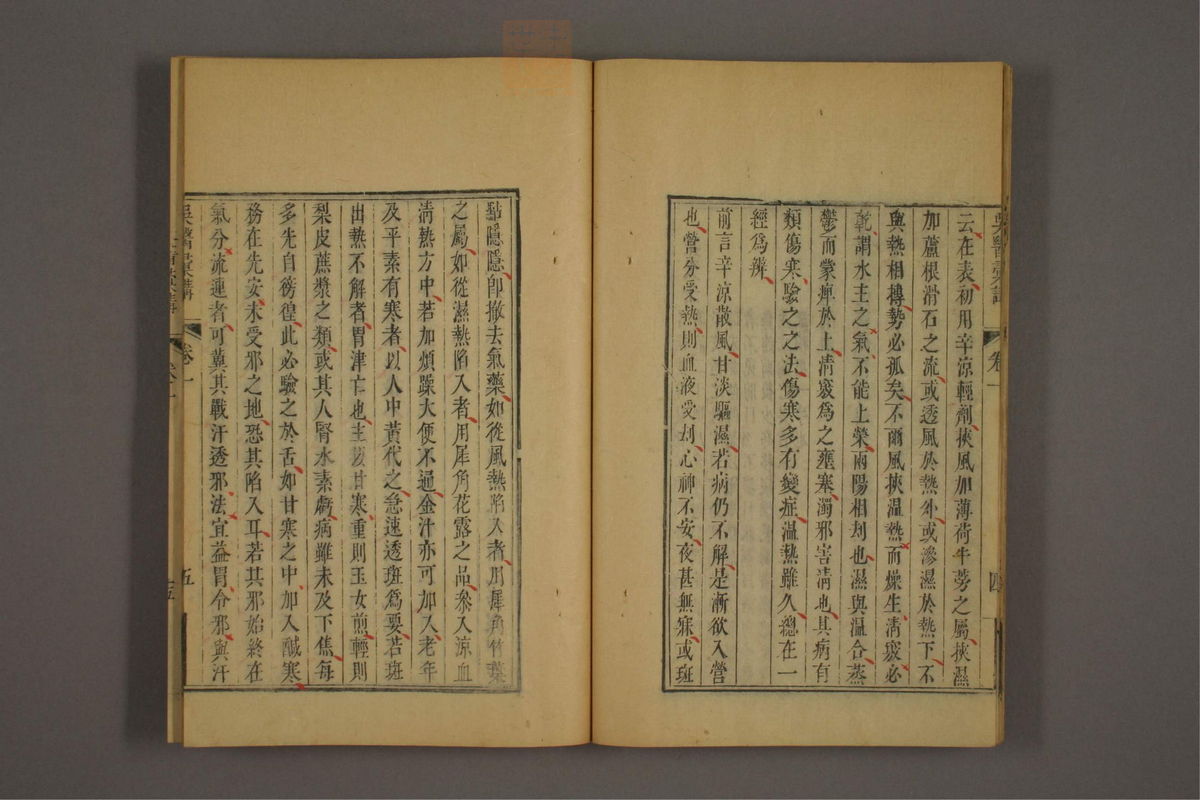 吳醫彙講
卷一
四
云在表初用辛涼輕劑挾風加薄荷牛蒡之屬挾濕
加蘆根滑石之流或透風於熱外或滲濕於熱下不
與熱相搏勢必孤矣不爾風挾温熱而燥生清竅必
乾謂水主之氣不能上榮兩陽相刼也濕與温合蒸
鬱而蒙痺於上清竅爲之壅塞濁邪害清也其病有
類傷寒驗之之法傷寒多有變症温熱雖久總在一
經爲辨
前言辛涼散風甘淡驅濕若病仍不解是漸欲入營
也營分受熱則血液受刼心神不安夜甚無寐或斑
點隱隱卽撤去氣藥如從風熱陷入者用犀角竹葉
之屬如從濕熱陷入者用犀角花露之品叅入涼血
清熱方中若加煩躁大便不通金汁亦可加入老年
及平素有寒者以人中黃代之急速透斑爲要若斑
出熱不解者胃津亡也主以甘寒重則玉女煎輕則
梨皮蔗漿之類或其人腎水素虧病雖未及下焦每
多先自徬徨此必驗之於舌如甘寒之中加入鹹寒
務在先安未受邪之地恐其陷入耳若其邪始終在
氣分流連者可冀其戰汗透邪法宜益胃令邪與汗
吳醫彙講
卷一
五